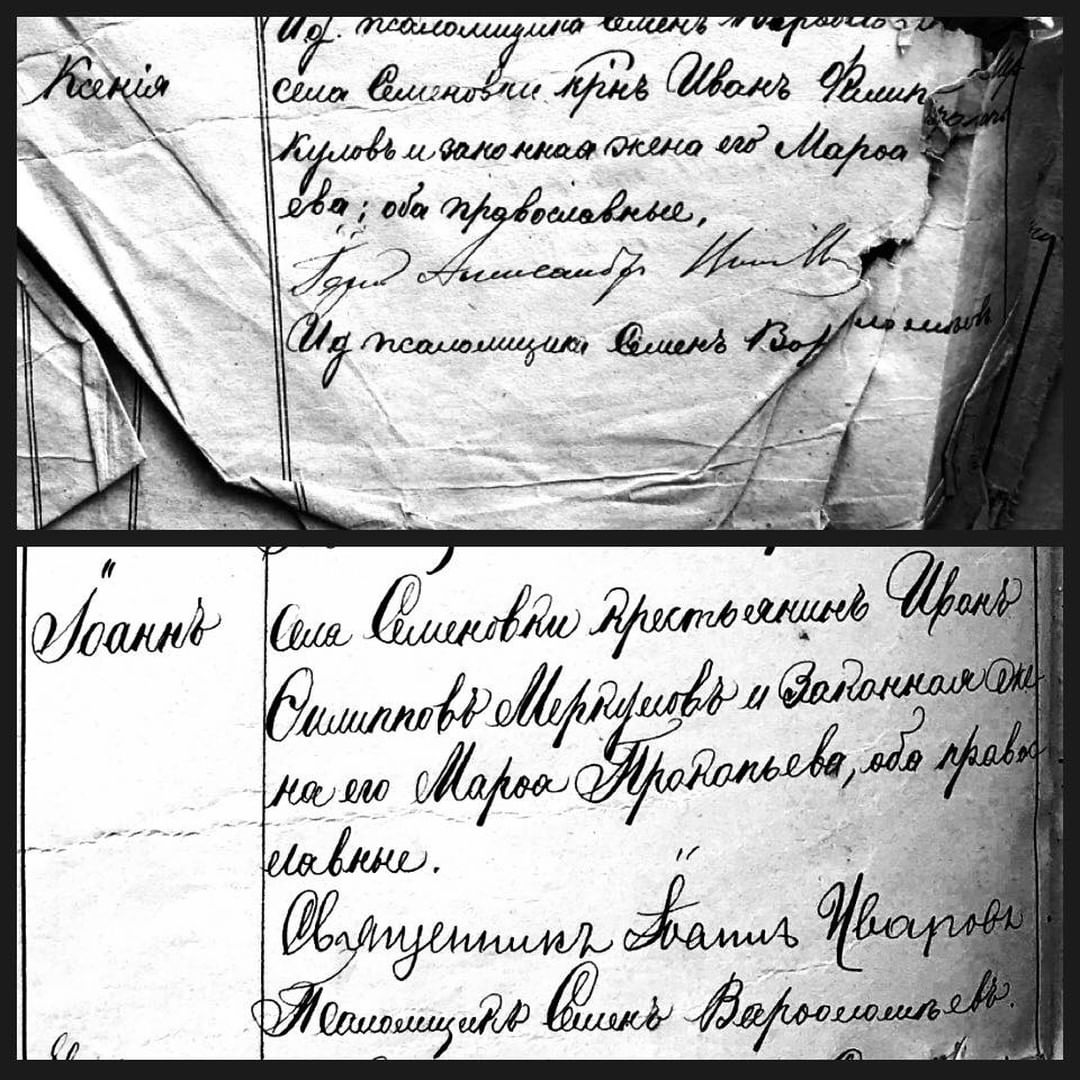 Ид. псаломщика Семенъ
Ксенія
села Семеновки крнъ Иванъ Филип
куловъ и законная жена его Марѳа
ева; оба православные,
Александръ
Ид псаломщика Семенъ Вар
Іоаннъ
Села Семеновки крестьянинъ Иванъ
Филипповъ Меркуловъ и Законная же-
на его Марѳа Прокопьева, оба право
славные.
Священникъ Іоаннъ Уваровъ
Псаломщикъ Семенъ Варѳоломѣевъ.